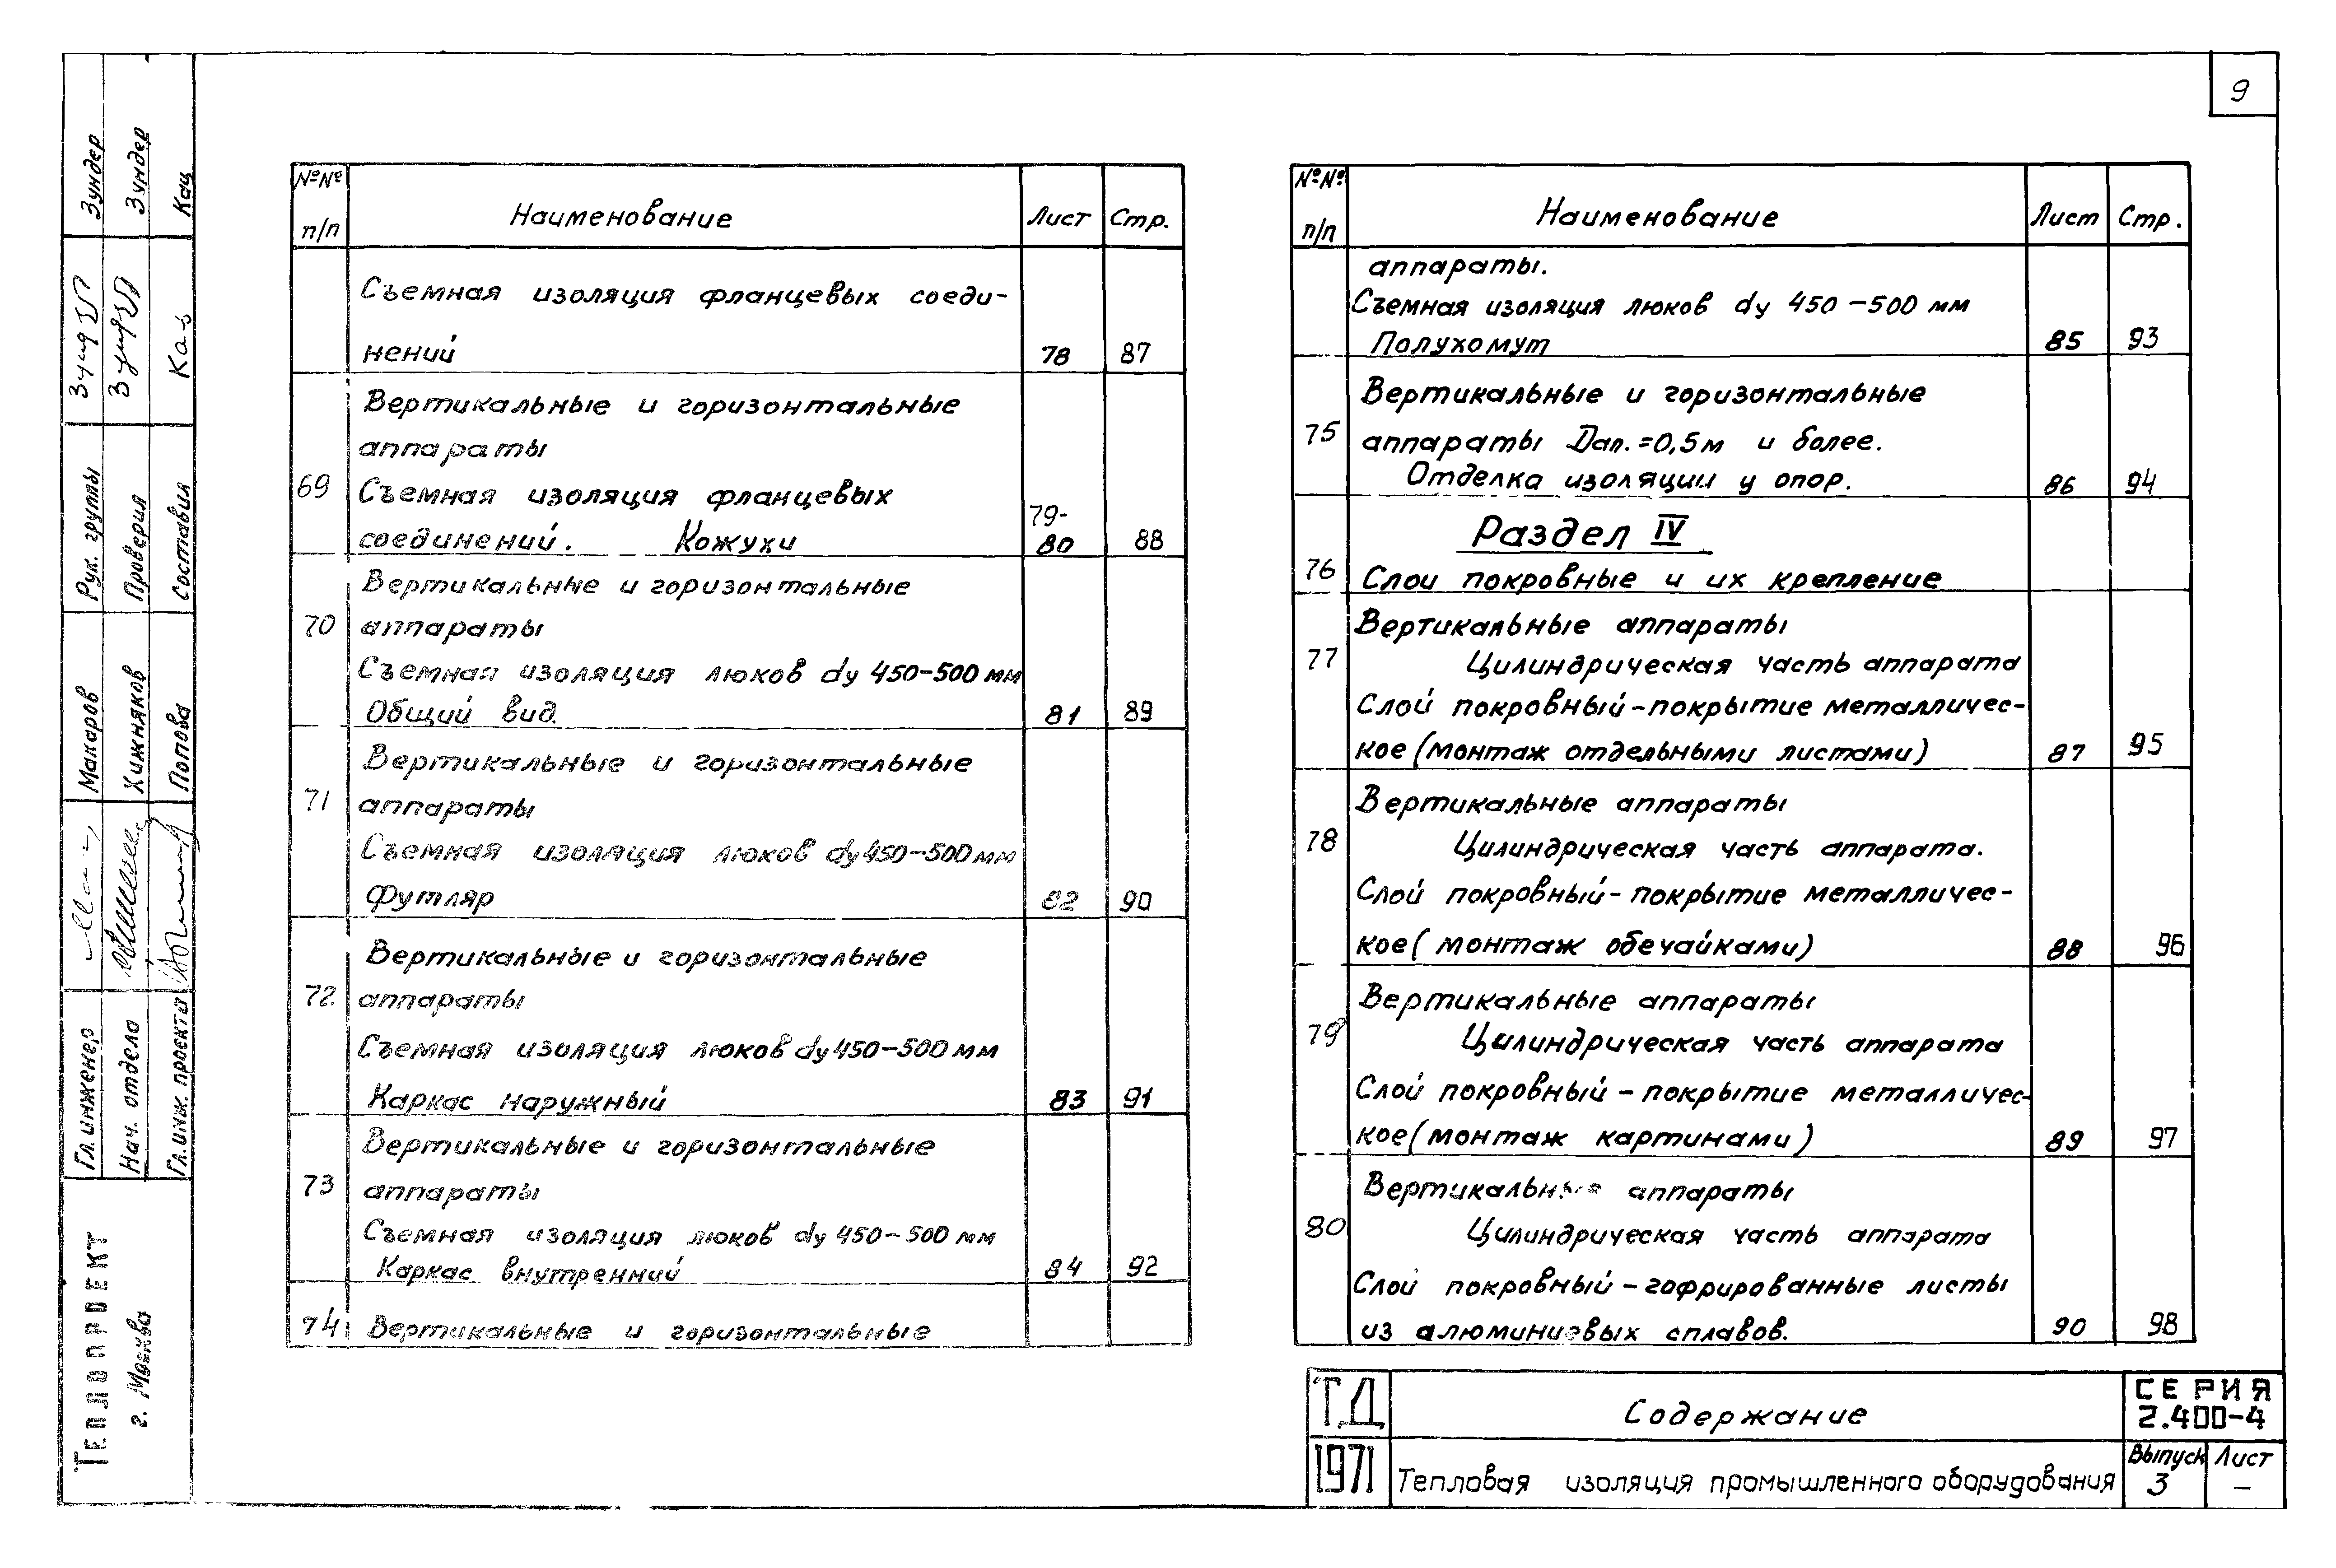 9
№№ п/п Наименование Лист Стр.
Съемная изоляция фланцевых соеди-
нений 78 87
Вертикальные и горизонтальные
аппараты
69 Съемная изоляция фланцевых
соединений. Кожухи 79-80 88
Вертикальные и горизонтальные
70 аппараты
Съемная изоляция люков dу 450-500 мм
Общий вид. 81 89
Вертикальные и горизонтальные
71 аппараты
Съемная изоляция люков dу 450-500 мм
Футляр 82 90
Вертикальные и горизонтальные
72 аппараты
Съемная изоляция люков dу 450-500 мм
Каркас наружный 83 91
Вертикальные и горизонтальные
73 аппараты
Съемная изоляция люков dу 450-500 мм
Каркас внутренний 84 92
74 Вертикальные и горизонтальные
№№ п/п Наименование Лист Стр.
аппараты.
Съемная изоляция люков dу 450-500 мм
Полухомут 85 93
Вертикальные и горизонтальные
75 аппараты Dап.=0,5м и более.
Отделка изоляции у опор. 86 94
Раздел IV
76 Слои покровные и их крепление
Вертикальные аппараты
77 Цилиндрическая часть аппарата
Слой покровный-покрытие металличес-
кое (монтаж отдельными листами) 87 95
Вертикальные аппараты
78 Цилиндрическая часть аппарата.
Слой покровный-покрытие металличес-
кое (монтаж обечайками) 88 96
Вертикальные аппараты
79 Цилиндрическая часть аппарата
Слой покровный-покрытие металличес-
кое (монтаж картинами) 89 97
Вертикальные аппараты
80 Цилиндрическая часть аппарата
Слой покровный-гофрированные листы
из алюминиевых сплавов. 90 98
ТД Содержание СЕРИЯ 2.400-4
1971 Тепловая изоляция промышленного оборудования Выпуск 3 Лист –
Теплопроект
г. Москва
Гл. инженер Макаров Рук. группы Зундер
Нач. отдела Хижняков Проверил Зундер
Гл. инж. проекта Попова Составил Кац